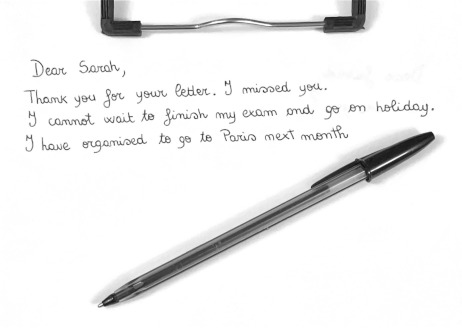 Dear Sarah,
Thank you for your letter. I missed you.
I cannot wait to finish my exam and go on holiday.
I have organised to go to Paris next month